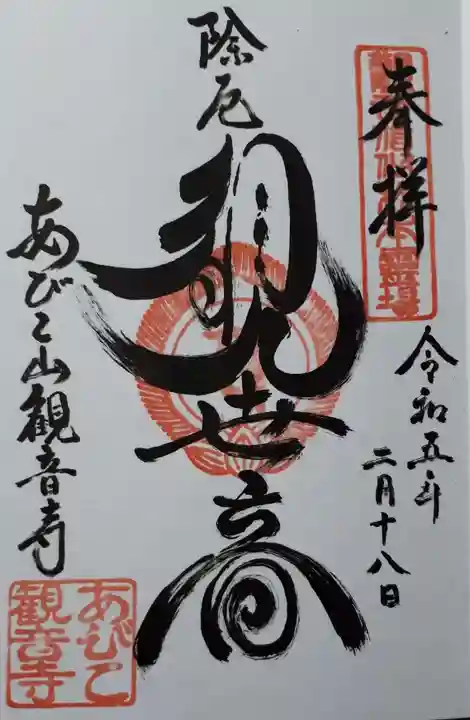 奉拝
令和五年
二月十八日
除厄
観世音
あびこ山観音寺
あびこ
観音寺